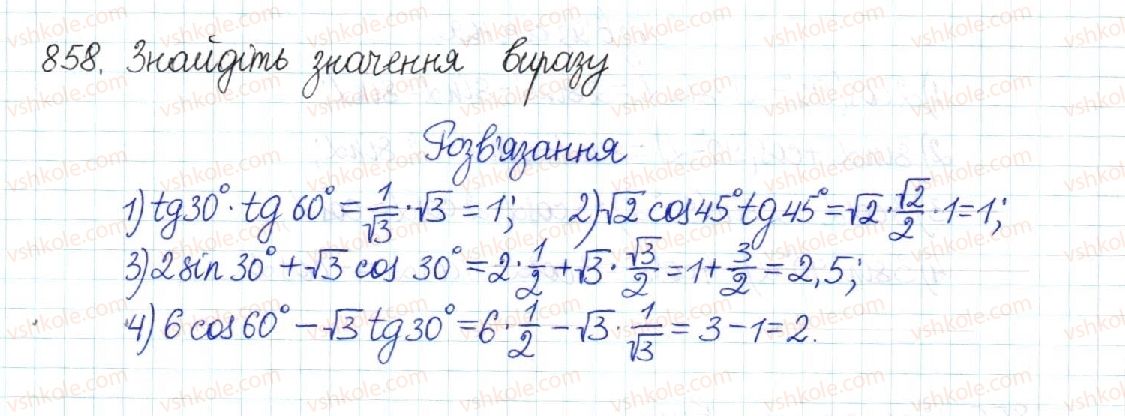 858. Знайдіть значення виразу
Розв'язання
1) tg 30° · tg 60° = 1/√3 · √3 = 1; 2) √2 cos 45° tg 45° = √2 · √2/2 · 1 = 1;
3) 2 sin 30° + √3 cos 30° = 2 · 1/2 + √3 · √3/2 = 1 + 3/2 = 2,5;
4) 6 cos 60° − √3 tg 30° = 6 · 1/2 − √3 · 1/√3 = 3 − 1 = 2.